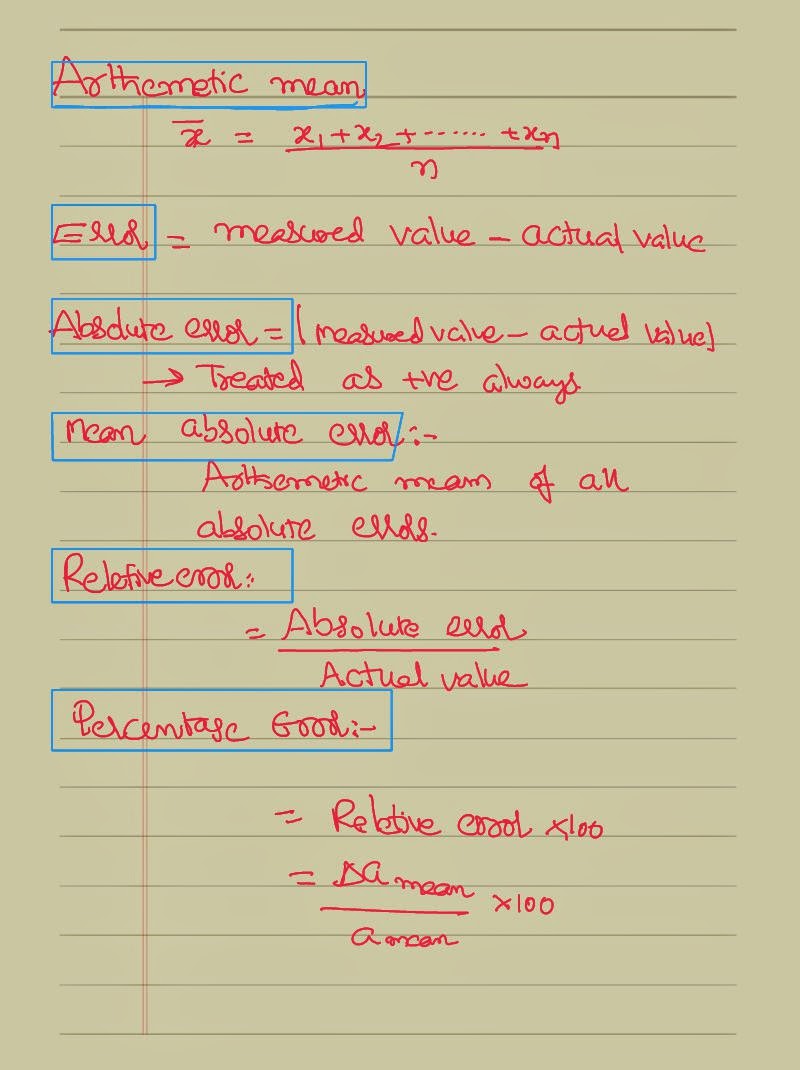 Arthemetic mean
x̄ = x₁+x₂+······+xn
n
Error = measured value – actual value
Absolute error = |measured value – actual value|
→ Treated as +ve always
Mean absolute error:-
Arthemetic mean of all
absolute errors.
Relative error:
= Absolute error
Actual value
Percentage Error:-
= Relative error ×100
= Δa mean ×100
a mean